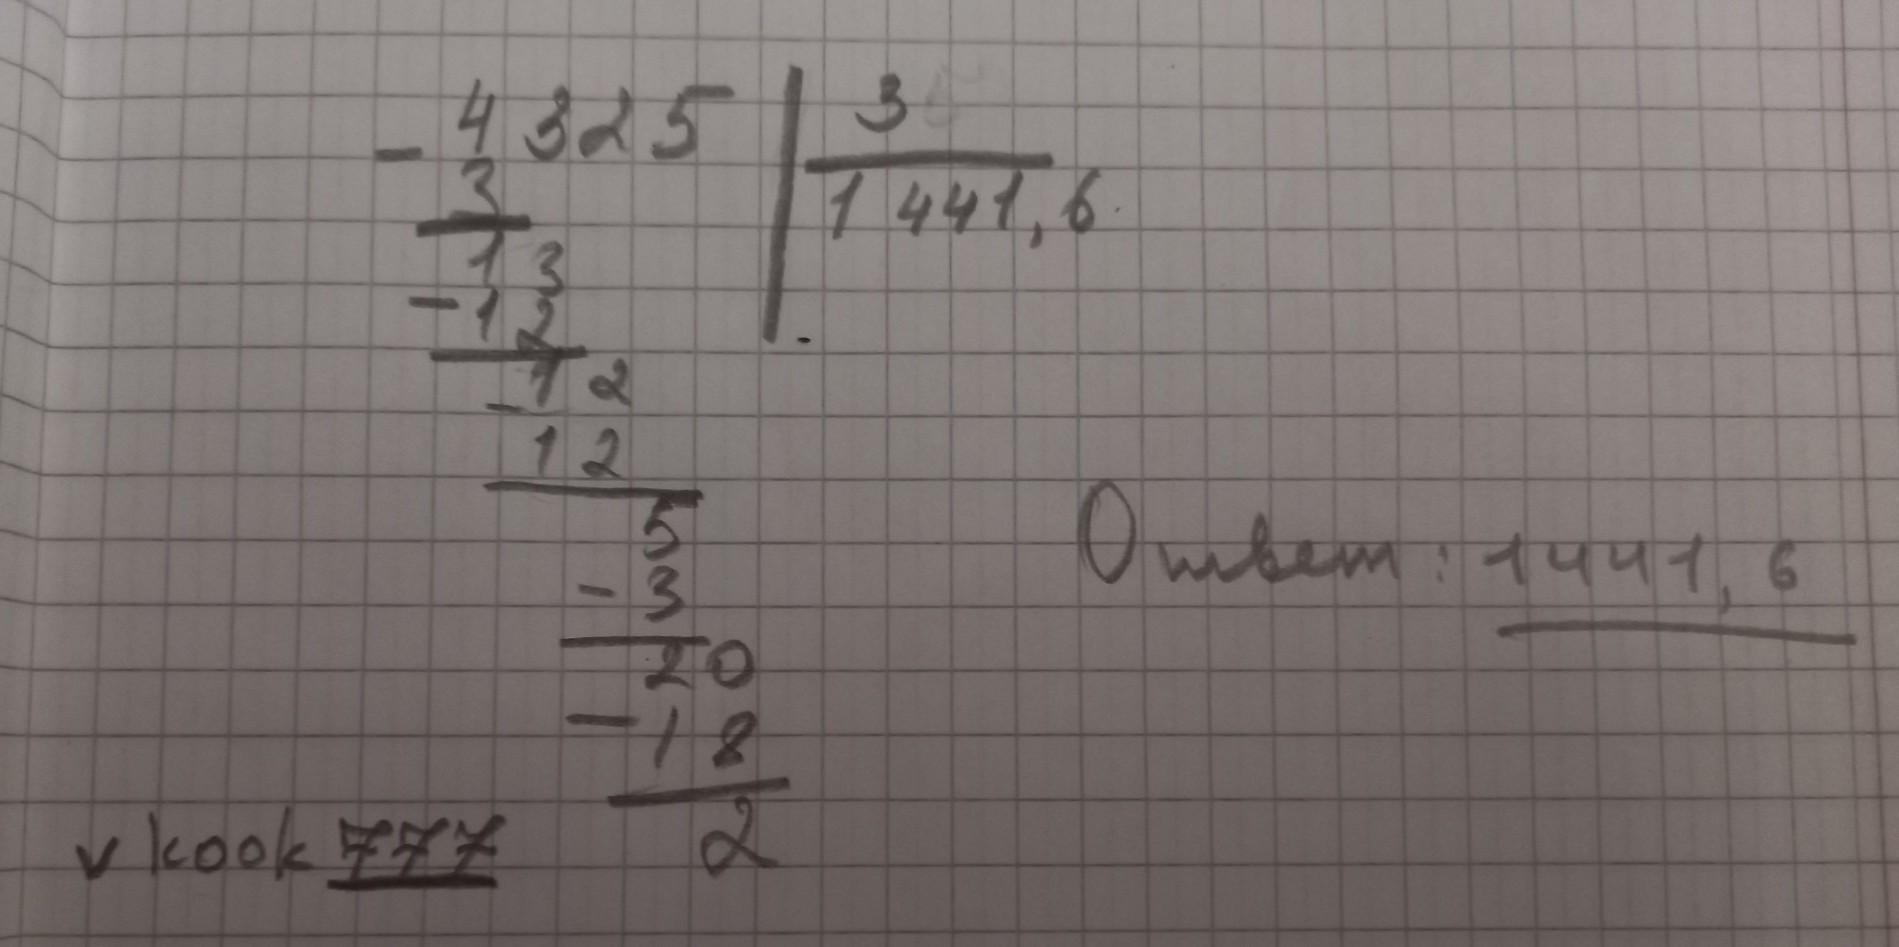 - 4325 | 3
3 1441,6
13
- 12
- 12
12
5
- 3
20
- 18
2
Ответ: 1441,6
vkook 777